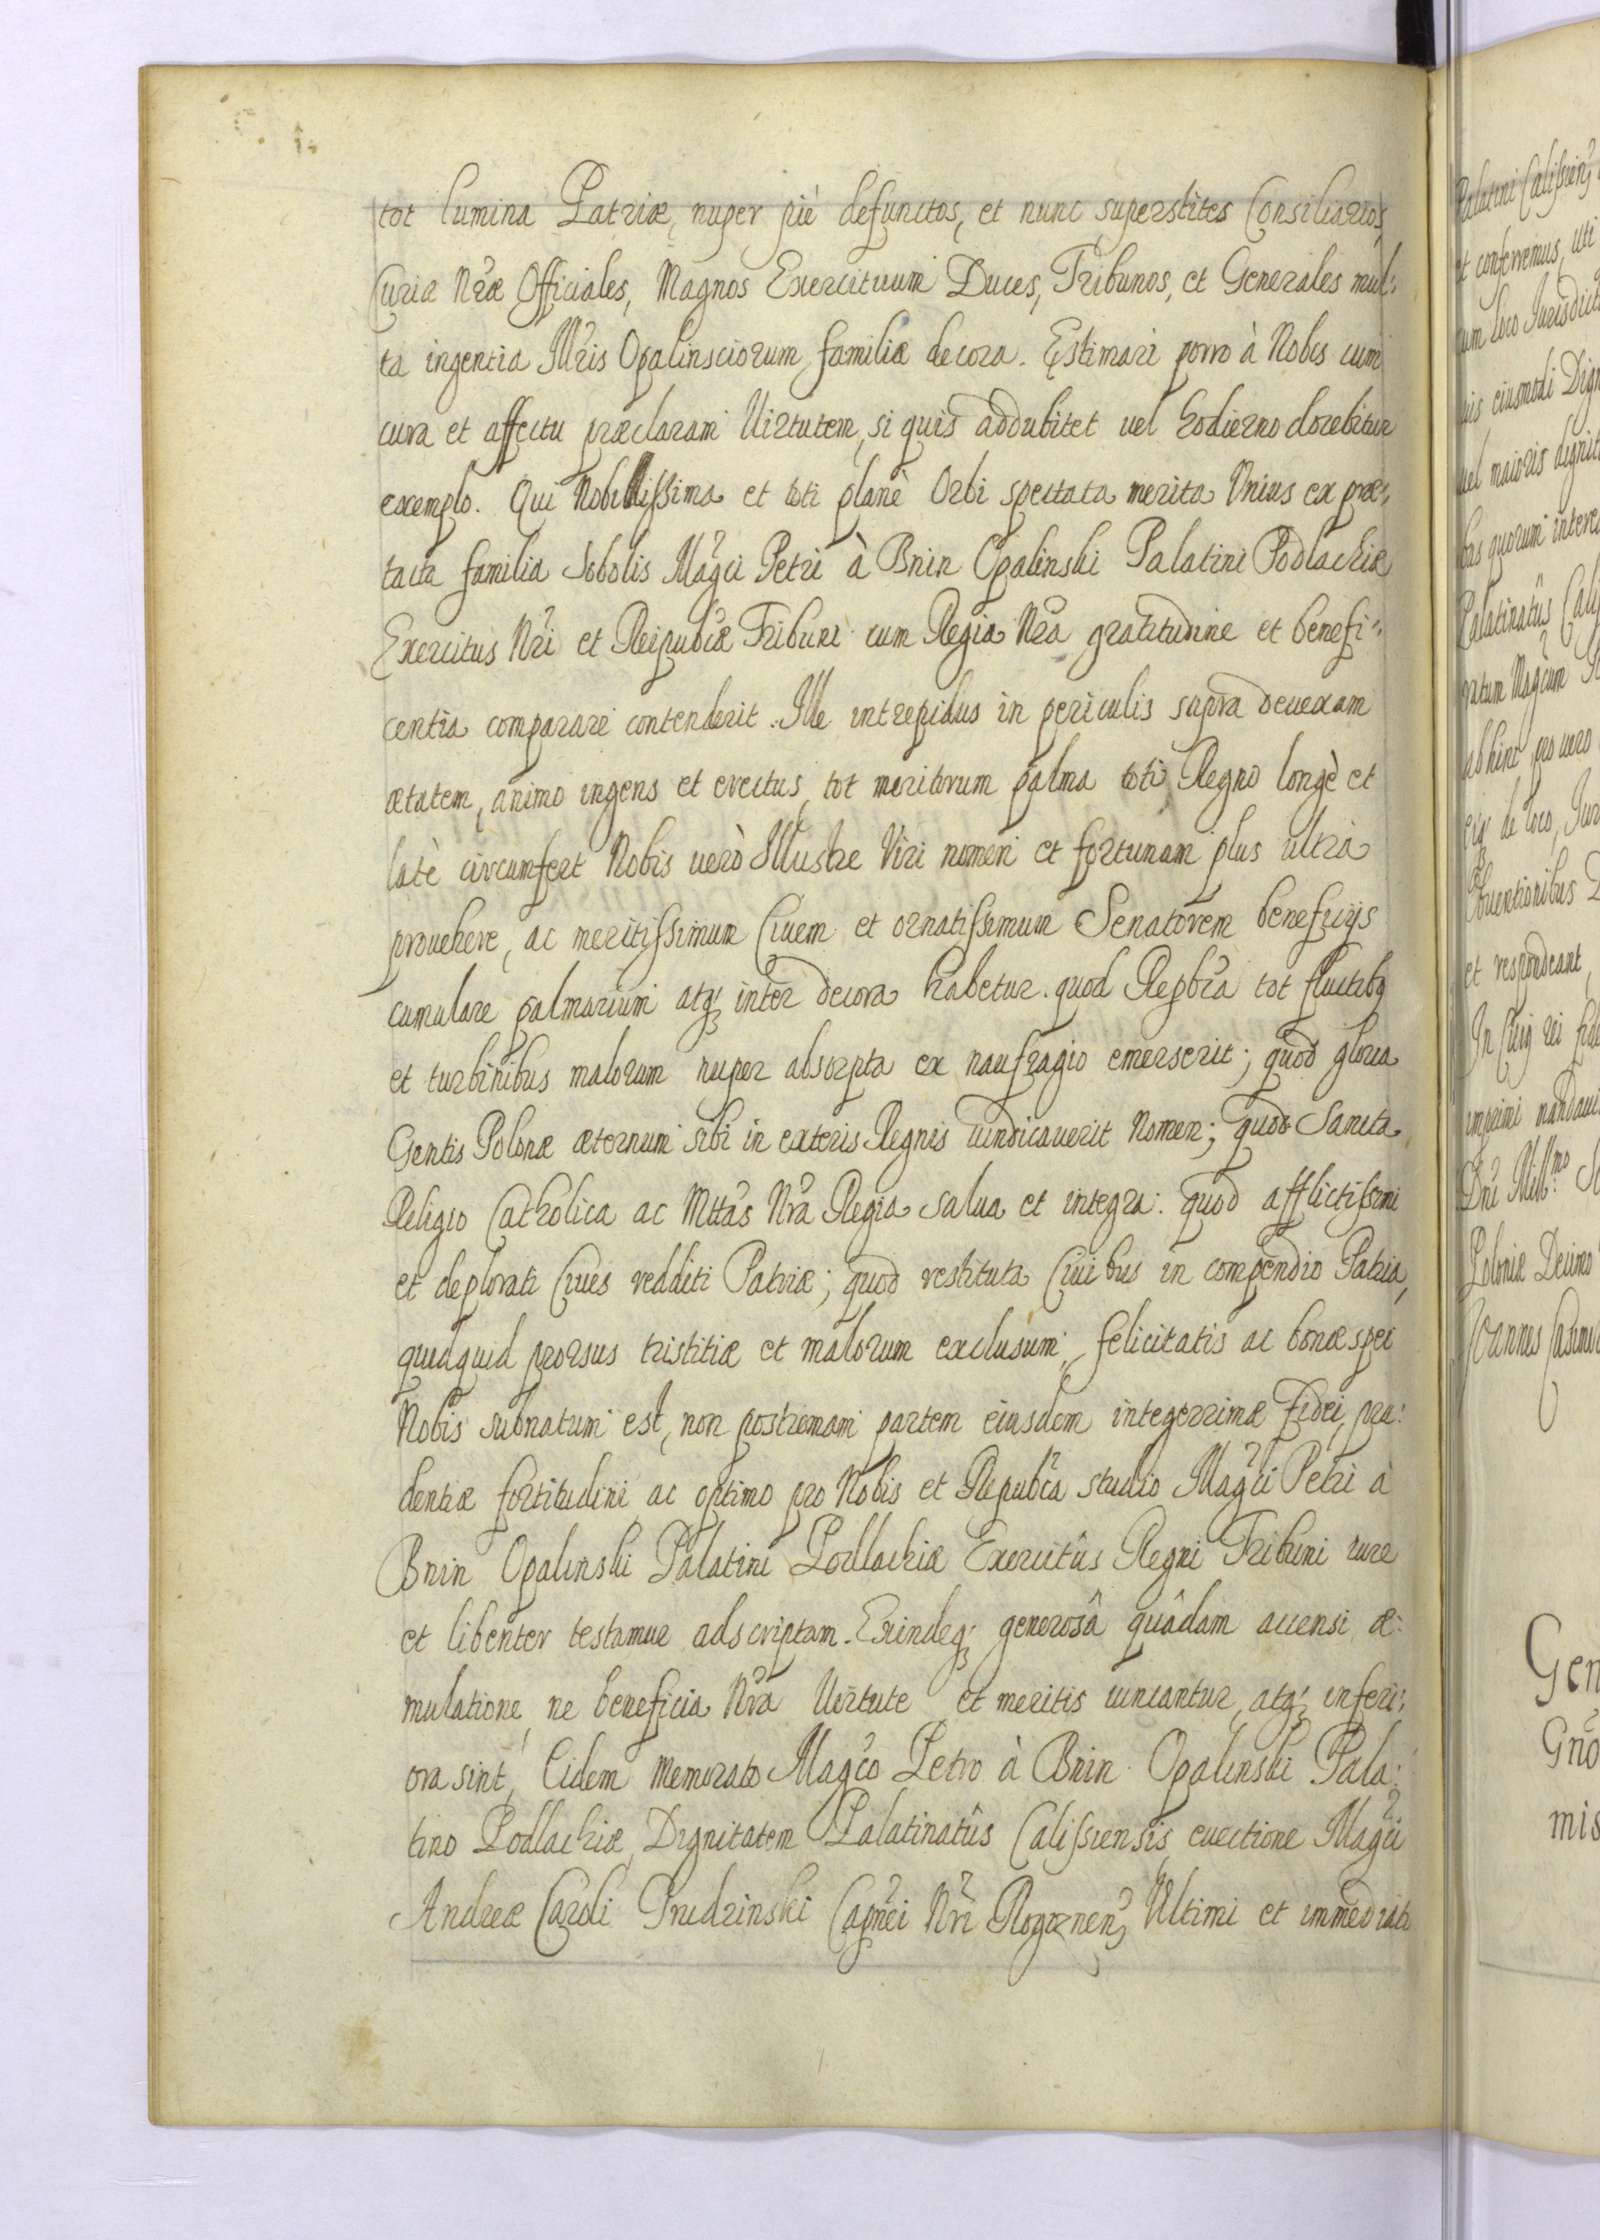 tot lumina Patriæ, nuper piè defunctos, et nunc superstites Consiliarios,
Curiæ Nræ Officiales, Magnos Exercituum Duces, Tribunos, et Generales mul-
ta ingentia Illris Opalinsciorum familiæ decora. Estimari porro à Nobis cum
cura et affectu præclaram Uirtutem, si quis addubitet uel hodierno docebitur
exemplo. Qui Nobilissima et toti planè Orbi spectata merita Unius ex præ-
tacta familia Sobolis Magci Petri à Bnin Opalinski Palatini Podlachiæ
Exercitus Nri et Reipubcæ Tribuni cum Regia Nra gratitudine et benefi-
centia comparari contenderit. Ille intrepidus in periculis supra deuexam
ætatem, animo ingens et erectus, tot meritorum palma toti Regno longè et
latè circumfert Nobis uerò Illustre Viri nomen et fortunam plus ultra
prouehere, ac meritissimum Ciuem et ornatissimum Senatorem beneficijs
cumulare palmarium atq; inter decora habetur. quod Respbca tot fluctibq
et turbinibus malorum nuper absorpta ex naufragio emerserit; quod gloria
Gentis Polonæ æternum sibi in exteris Regnis uindicauerit Nomen; quod Sancta
Religio Catholica ac Mttas Nra Regia salua et integra: quod afflictissimi
et deplorati Ciues redditi Patriæ; quod restituta Ciuibus in compendio Patria,
quidquid prorsus tristitiæ et malorum exclusum, felicitatis ac bonæ spei
Nobis subnatum est, non postremam partem eiusdem integerrimæ Fidei, pru-
dentiæ fortitudini, ac optimo pro Nobis et Republca studio Magci Petri à
Bnin Opalinski Palatini Podlachiæ Exercitûs Regni Tribuni iure
et libenter testamur adscriptam. Exindeq; generosâ quâdam accensi æ-
mulatione, ne beneficia Nra Uirtute et meritis uincantur, atq; inferi-
ora sint, Eidem memorato Magco Petro à Bnin Opalinski Pala-
tino Podlachiæ, Dignitatem Palatinatûs Calissiensis, euectione Magci
Andreæ Caroli Grudzinski Capnei Nri Rogoznen, Ultimi et immediati